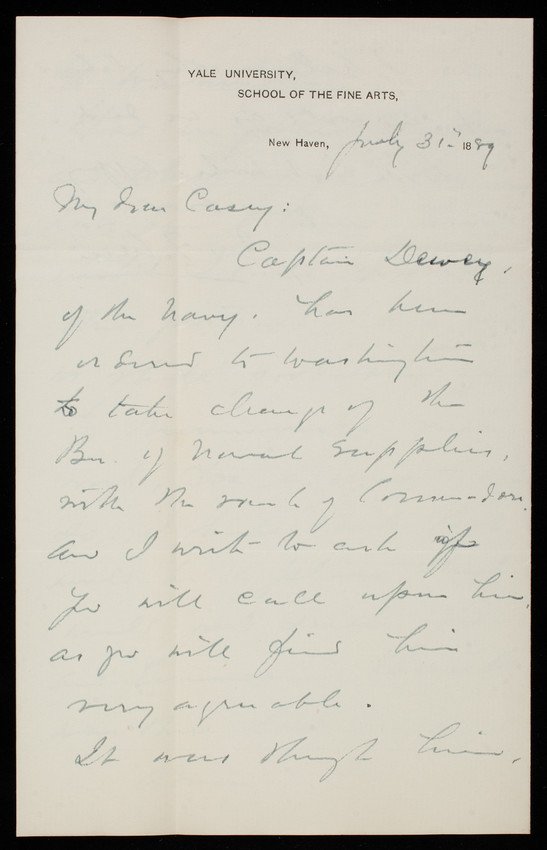 YALE UNIVERSITY,
SCHOOL OF THE FINE ARTS,
New Haven, July 31st 1889
My dear Casey:
Captain Dewey,
of the Navy, has been
ordered to Washington
to take charge of the
Bu. of Naval Supplies,
with the rank of Commodore,
and I write to ask if
you will call upon him,
as you will find him
very agreeable.
It was through him,